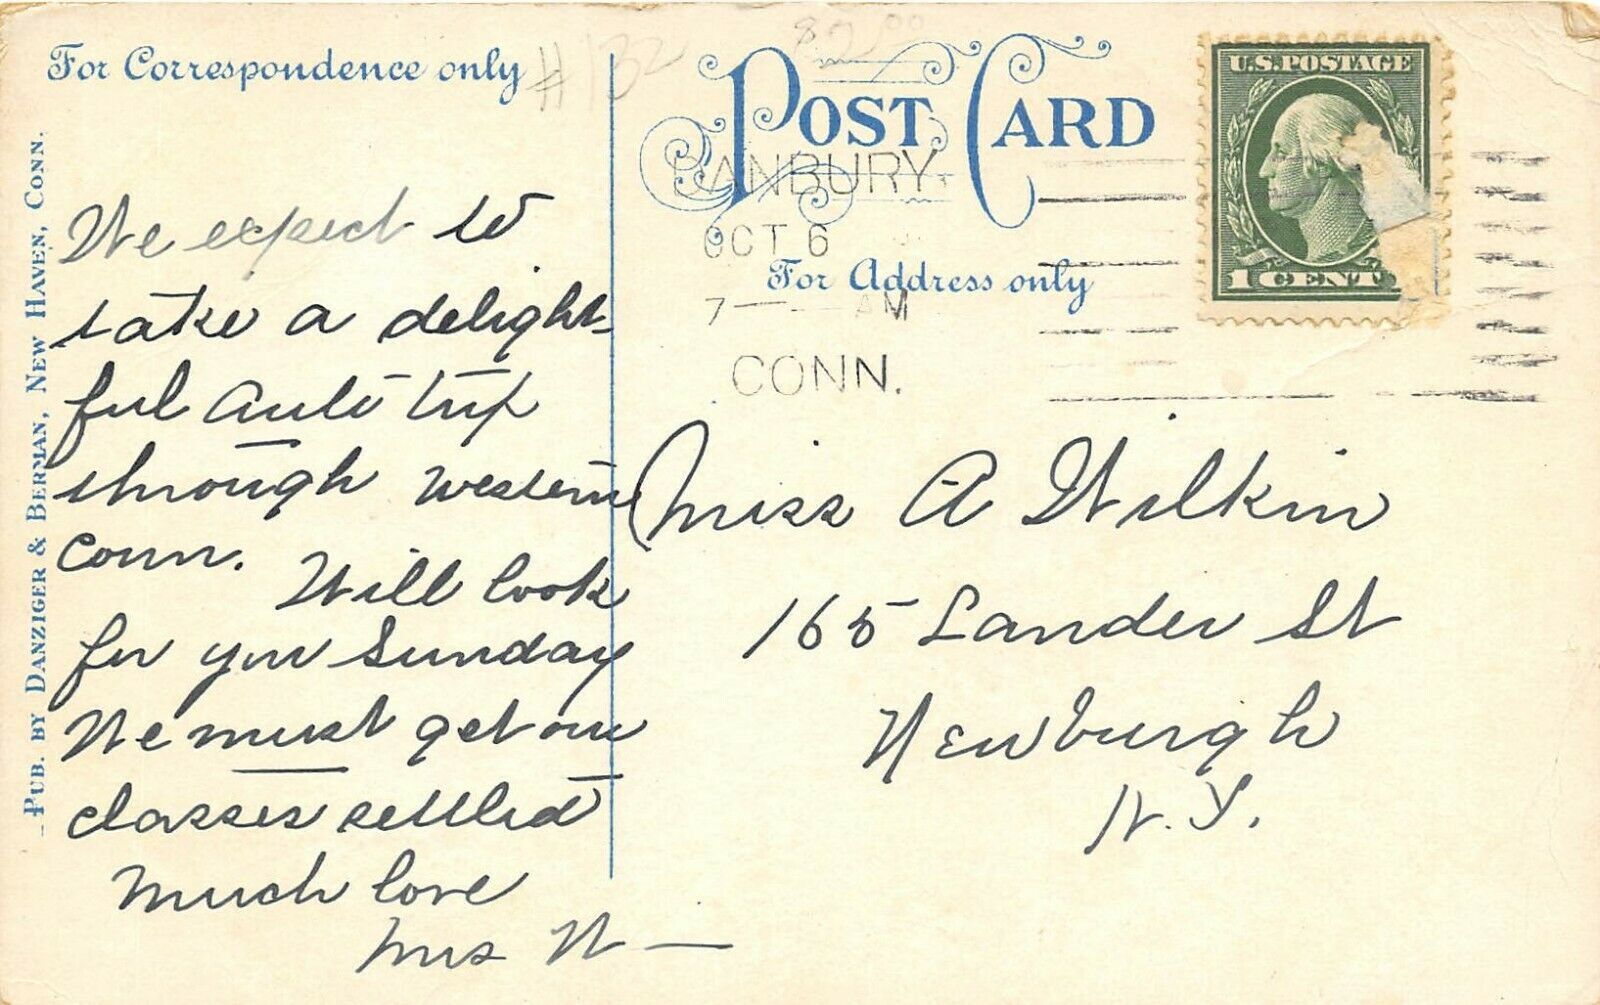 For Correspondence only
#132
$2.00
POST CARD
U.S. POSTAGE
1 CENT
DANBURY,
OCT 6
7 — AM
CONN.
For Address only
PUB. BY DANZIGER & BERMAN, NEW HAVEN, CONN.
We expect to
take a delight-
ful auto trip
through western
Conn.
Will look
for you Sunday
We must get our
classes settled
Much love
Mrs W —
Miss A Wilkin
165 Lander St
Newburgh
N. Y.